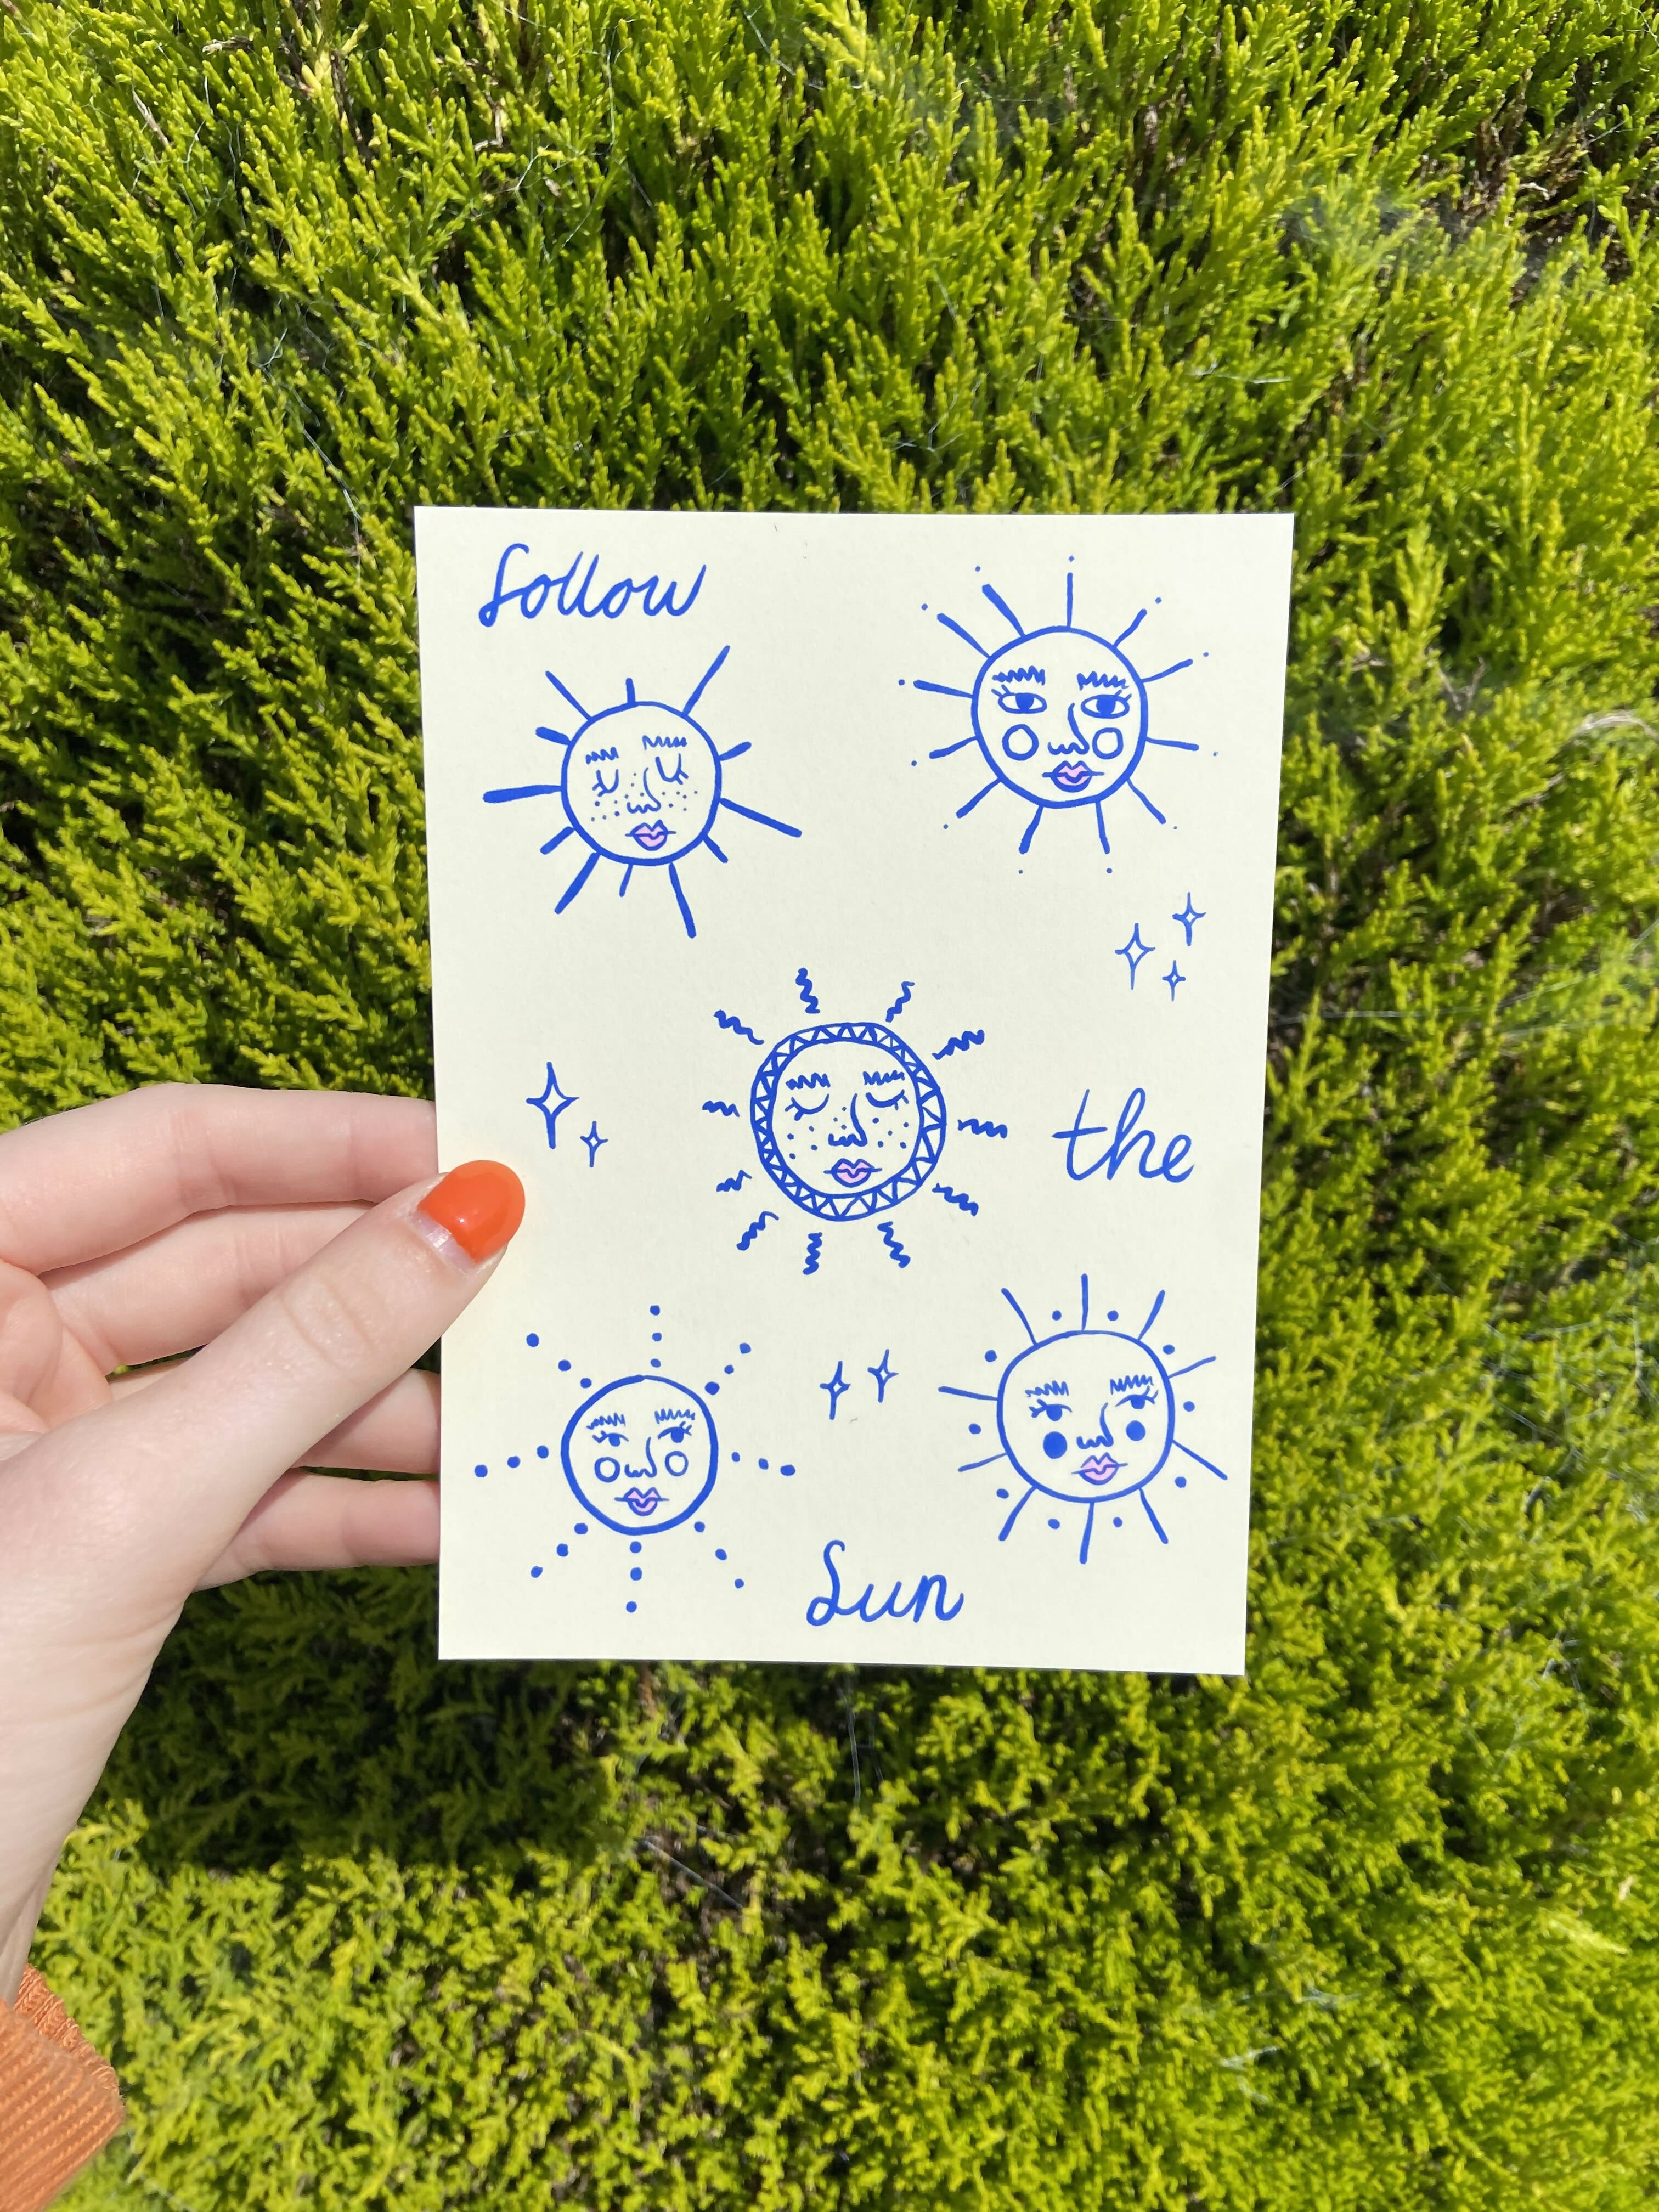 follow
the
Sun